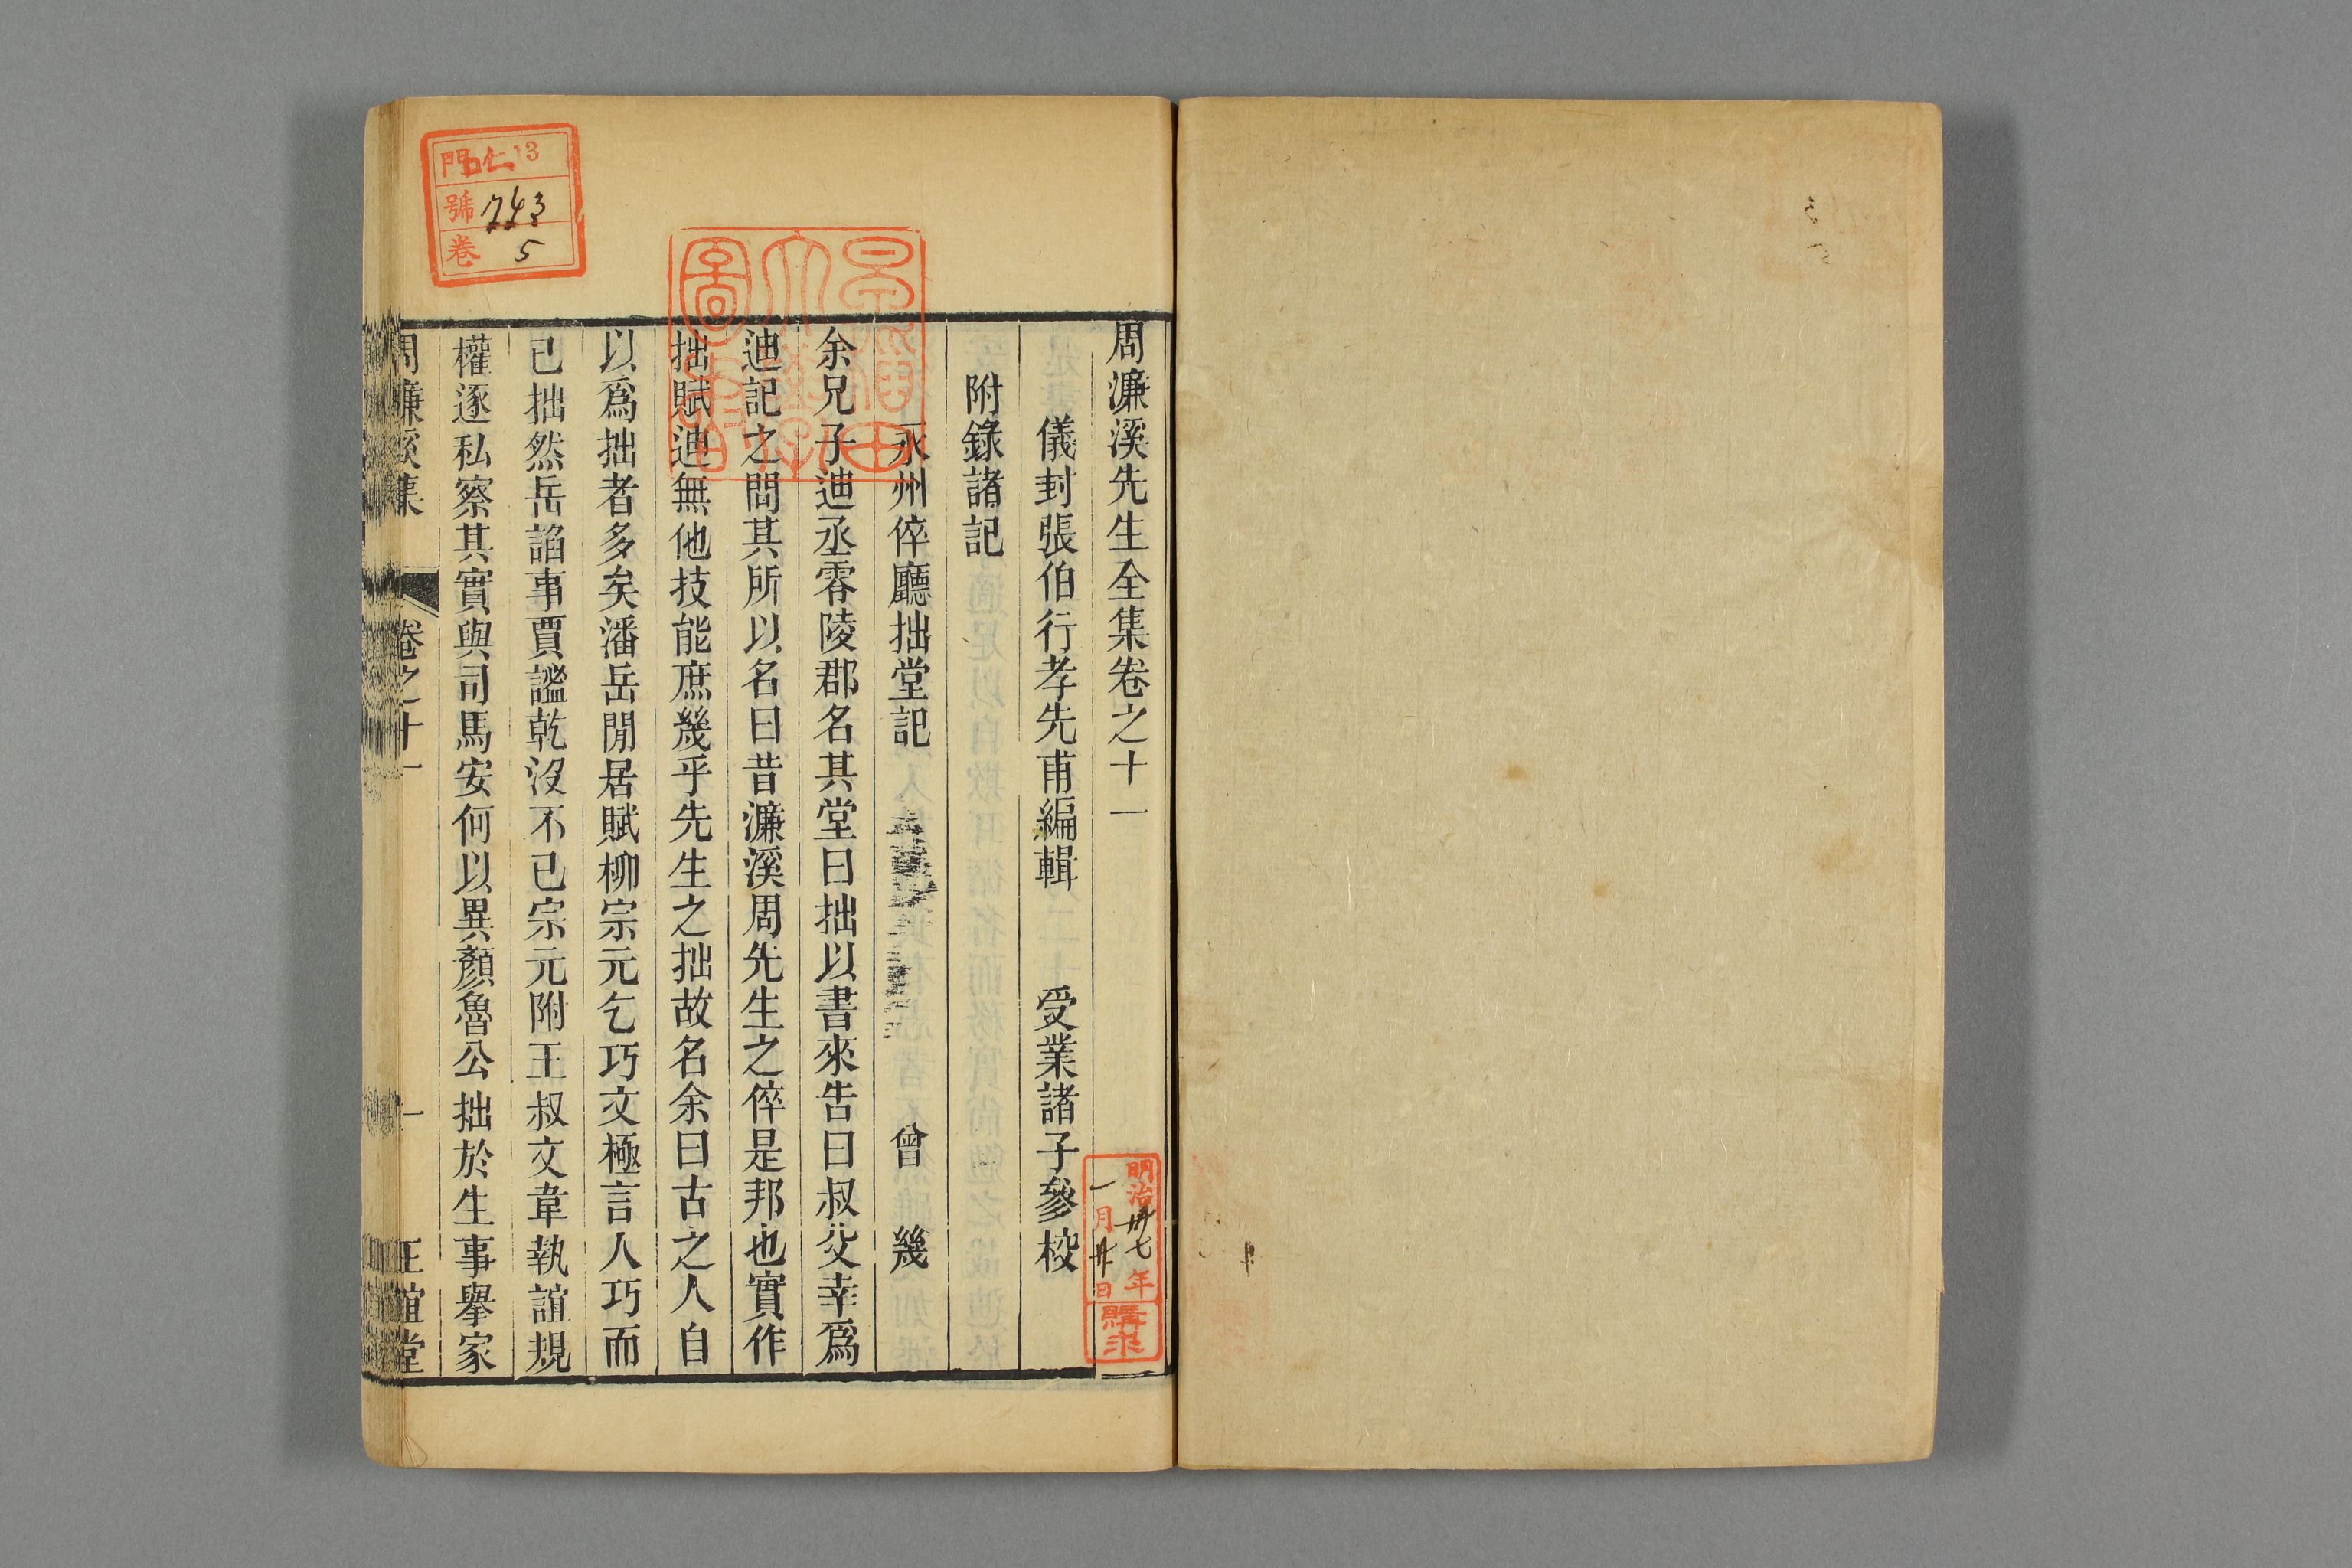 周濂溪先生全集卷之十一
儀封張伯行孝先甫編輯 受業諸子參校
附錄諸記
永州倅廳拙堂記 曾幾
余兄子迪丞零陵郡名其堂曰拙以書來告曰叔父幸爲
迪記之問其所以名曰昔濂溪周先生之倅是邦也實作
拙賦迪無他技能庶幾乎先生之拙故名余曰古之人自
以爲拙者多矣潘岳閒居賦柳宗元乞巧文極言人巧而
已拙然岳諂事賈謐乾沒不已宗元附王叔文韋執誼規
權逐私察其實與司馬安何以異顏魯公拙於生事舉家
周濂溪集 卷之十一 一 正誼堂
門 仁 13
號 743
卷 5
早稲田大學圖書
明治卅七年
一月廿日
購求